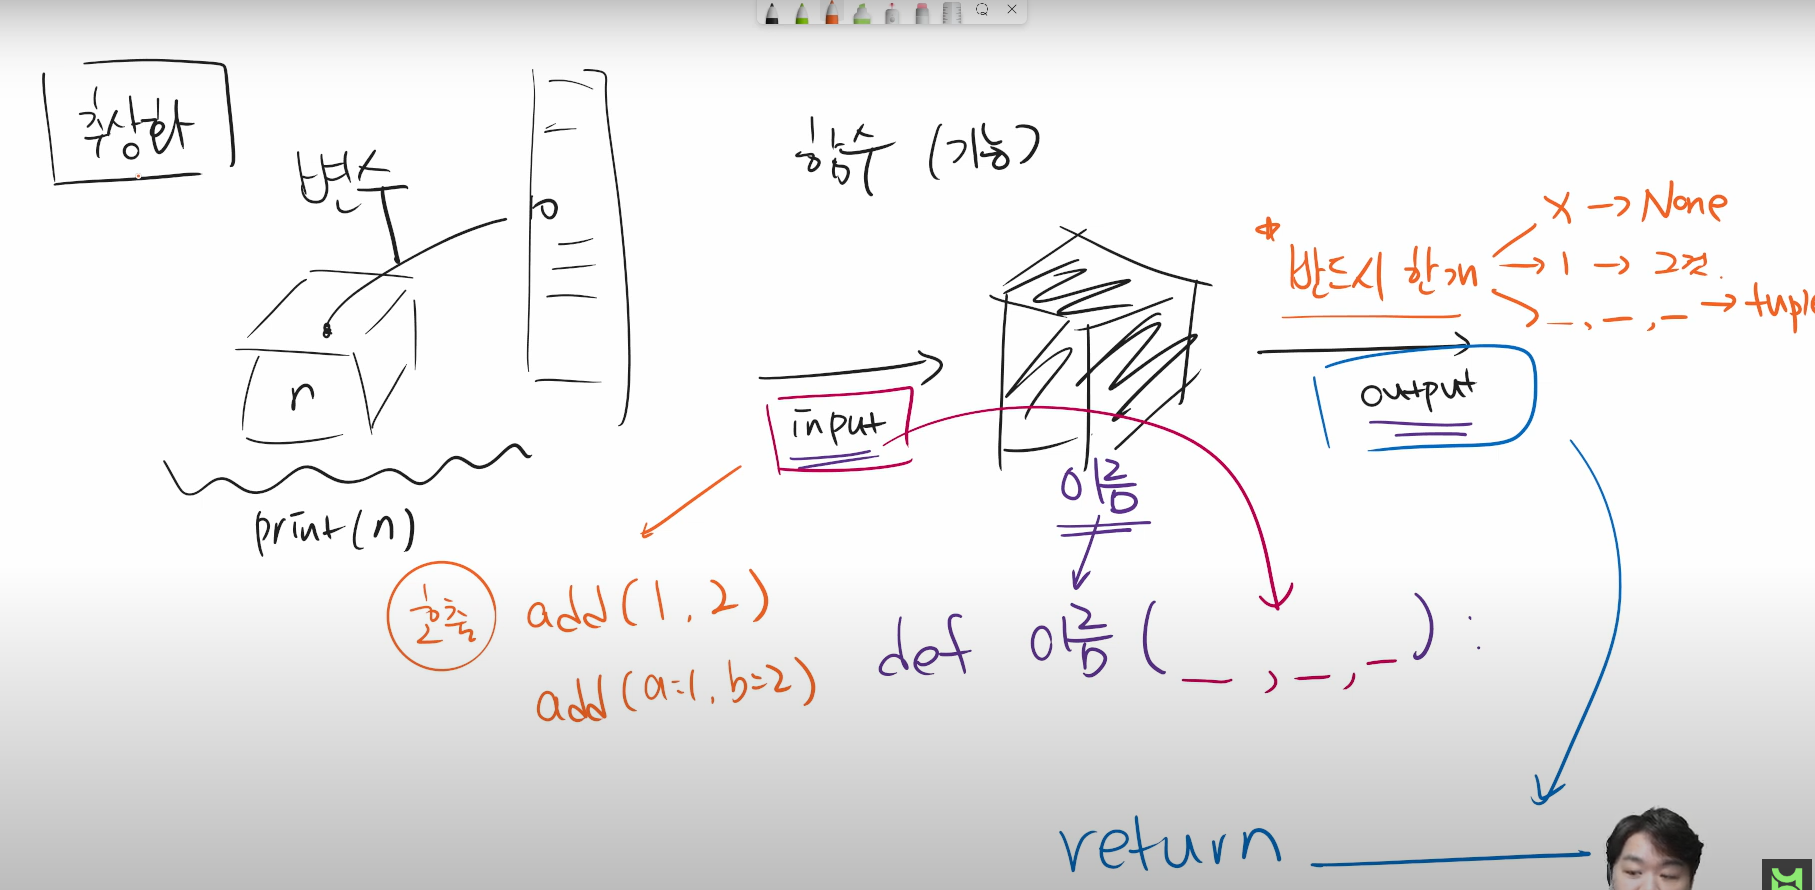 추상화
변수
10
n
print(n)
함수 (기능)
input
이름
* 반드시 한개
X → None
→ 1 → 그것.
_, _, _ → tuple
output
호출
add(1, 2)
add(a=1, b=2)
def 이름(_, _, _):
return